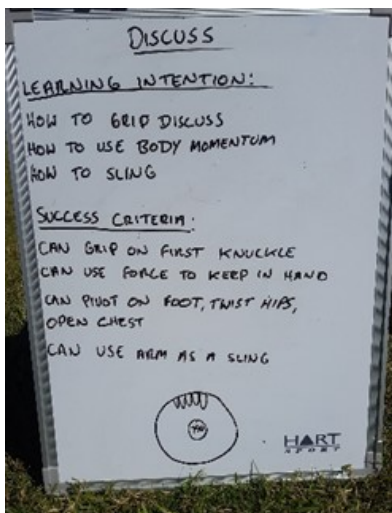 DISCUSS
LEARNING INTENTION:
HOW TO GRIP DISCUSS
HOW TO USE BODY MOMENTUM
HOW TO SLING
SUCCESS CRITERIA:
CAN GRIP ON FIRST KNUCKLE
CAN USE FORCE TO KEEP IN HAND
CAN PIVOT ON FOOT, TWIST HIPS,
OPEN CHEST
CAN USE ARM AS A SLING
HART
SPORT